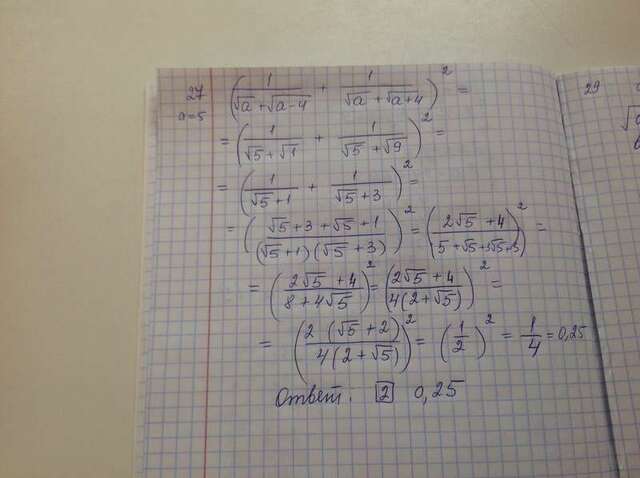 27 (1/(√a + √a-4) + 1/(√a + √a+4))² =
a=5
= (1/(√5 + √1) + 1/(√5 + √9))² =
= (1/(√5 + 1) + 1/(√5 + 3))² =
= ((√5 + 3 + √5 + 1)/((√5 + 1)(√5 + 3)))² = ((2√5 + 4)/(5 + √5 + 3√5 + 3))² =
= ((2√5 + 4)/(8 + 4√5))² = ((2√5 + 4)/(4(2 + √5)))² =
= ((2 (√5 + 2))/(4(2 + √5)))² = (1/2)² = 1/4 = 0,25
Ответ: 2 0,25
29